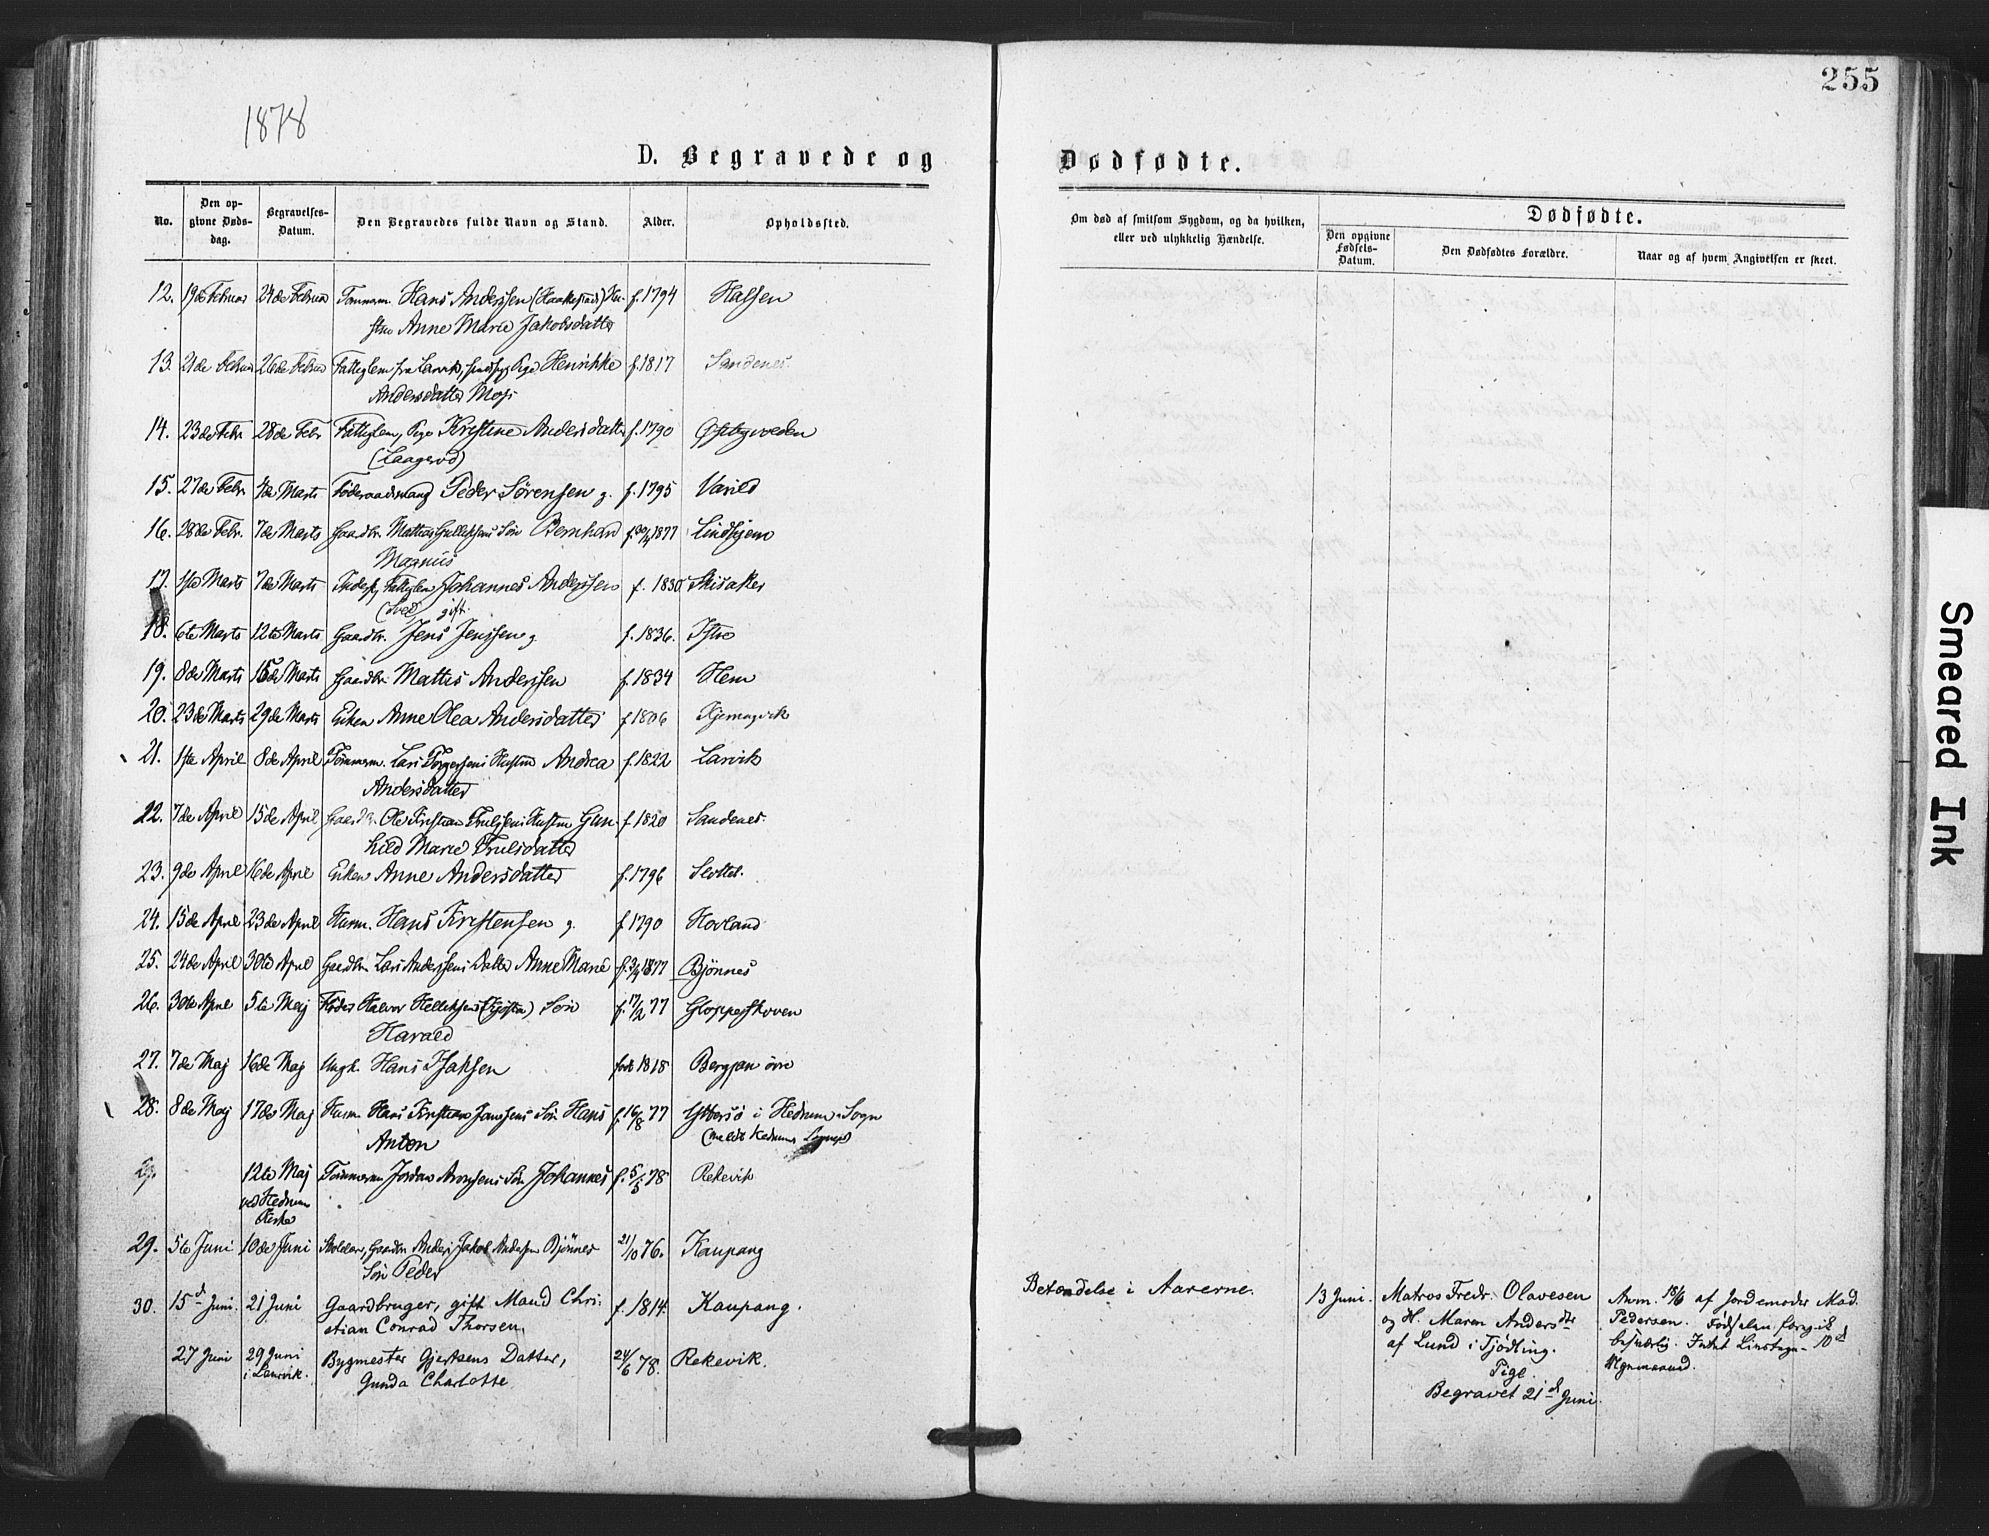 255
1878
D. Begravede og
Dødfødte.
No.
Den opgivne Dødsdag.
Begravelses-Datum.
Den Begravedes fulde Navn og Stand.
Alder.
Opholdssted.
Om død af smitsom Sygdom, og da hvilken,
eller ved ulykkelig Hændelse.
Dødfødte.
Den opgivne Fødsels-Datum.
Den Dødfødtes Forældre.
Naar og af hvem Angivelsen er skeet.
12. 19de Februar 24de Februar Tømmerm. Hans Anderssen (Haakestad) Hu- f. 1794 Halsen
stru Anne Marie Jakobsdatter
13. 21de Februar 26de Februar Fattiglem fra Larvik, Pige Henrikke f. 1817 Sandenes.
Andersdatter Moss
14. 23de Febr. 28de Febr Fattiglem, Pige Kirstine Andersdatter f. 1790
(Laagerød)
15. 27de Febr. 4de Marts Føderaadsmand Peder Sørensen g. f. 1795 Varild
16. 28de Febr. 7de Marts Gaardbr. Mathias Gulliksens Søn Bernhard 1877 Lindhjem
Magnus
17. 1ste Marts 7de Marts Fattiglem Johannes Anderssen f. 1830 Skisaker
gift.
18. 6te Marts 12te Marts Gaardbr. Jens Jenssen g f. 1836. Istre
19. 8de Marts 15de Marts Gaardbr. Mattis Anderssen f. 1834 Hem
20. 23de Marts 29de Marts Enken Anne Olea Andersdatter f 1806
21. 1ste April 8de April Tømmerm. Lars Torgersens Hustru Andrea f. 1822 Larvik
Andersdatter
22. 7de April 15de April Gaardbr. Ole Kristian Trulsens Hustru Gun- f. 1820 Sandenes.
hild Marie Trulsdatter
23. 9de April 16de April Enken Anne Andersdatter f. 1796 Slottet.
24. 15de April 23de April Husm. Hans Kristensen g. f 1790 Hovland
25. 24de April 30te April Gaardbr. Lars Anderssens Datter Anne Marie 1877 Bjønnes
26. 30te April 5te Maj Halvor Helleksens Søn f. 17/2 77
Harald
27. 7de Maj 16de Maj Ungk. Hans Isaksen født 1818 Bergan øvre
28. 8de Maj 17de Maj Husm. Hans Kristian Janssens Søn Hans f 16/8 77 Yttersø i Hedrum Sogn
Anton
12te Maj Tømmerm Jordan Aronsens Søn Johannes f. 5/5 78 Rekevik
ved Hedrum
Kirke
29. 5te Juni 10de Juni Gaardbr Anders Jakob Andersen Bjønnes 21/10 76. Kaupang
Søn Peder
30. 15d Juni. 21 Juni Gaardbruger, gift Mand Chri- f. 1814. Kaupang.
stian Conrad Thorsen.
27 Juni 29 Juni Bygmester Gjertsens Datter, 24/6 78. Rekevik.
i Laurvik. Gunda Charlotte
Betændelse i Aarerne.
13 Juni. Matros Fredr. Olavesen
og H. Maren Andersdtr
af Lund i Tjødling.
Pige.
Begravet 21de Juni.
Anm. 18/6 af Jordemoder Mad.
Pedersen. Fødselen foregik
besværlig. Intet Livstegn. 10d
Smeared Ink